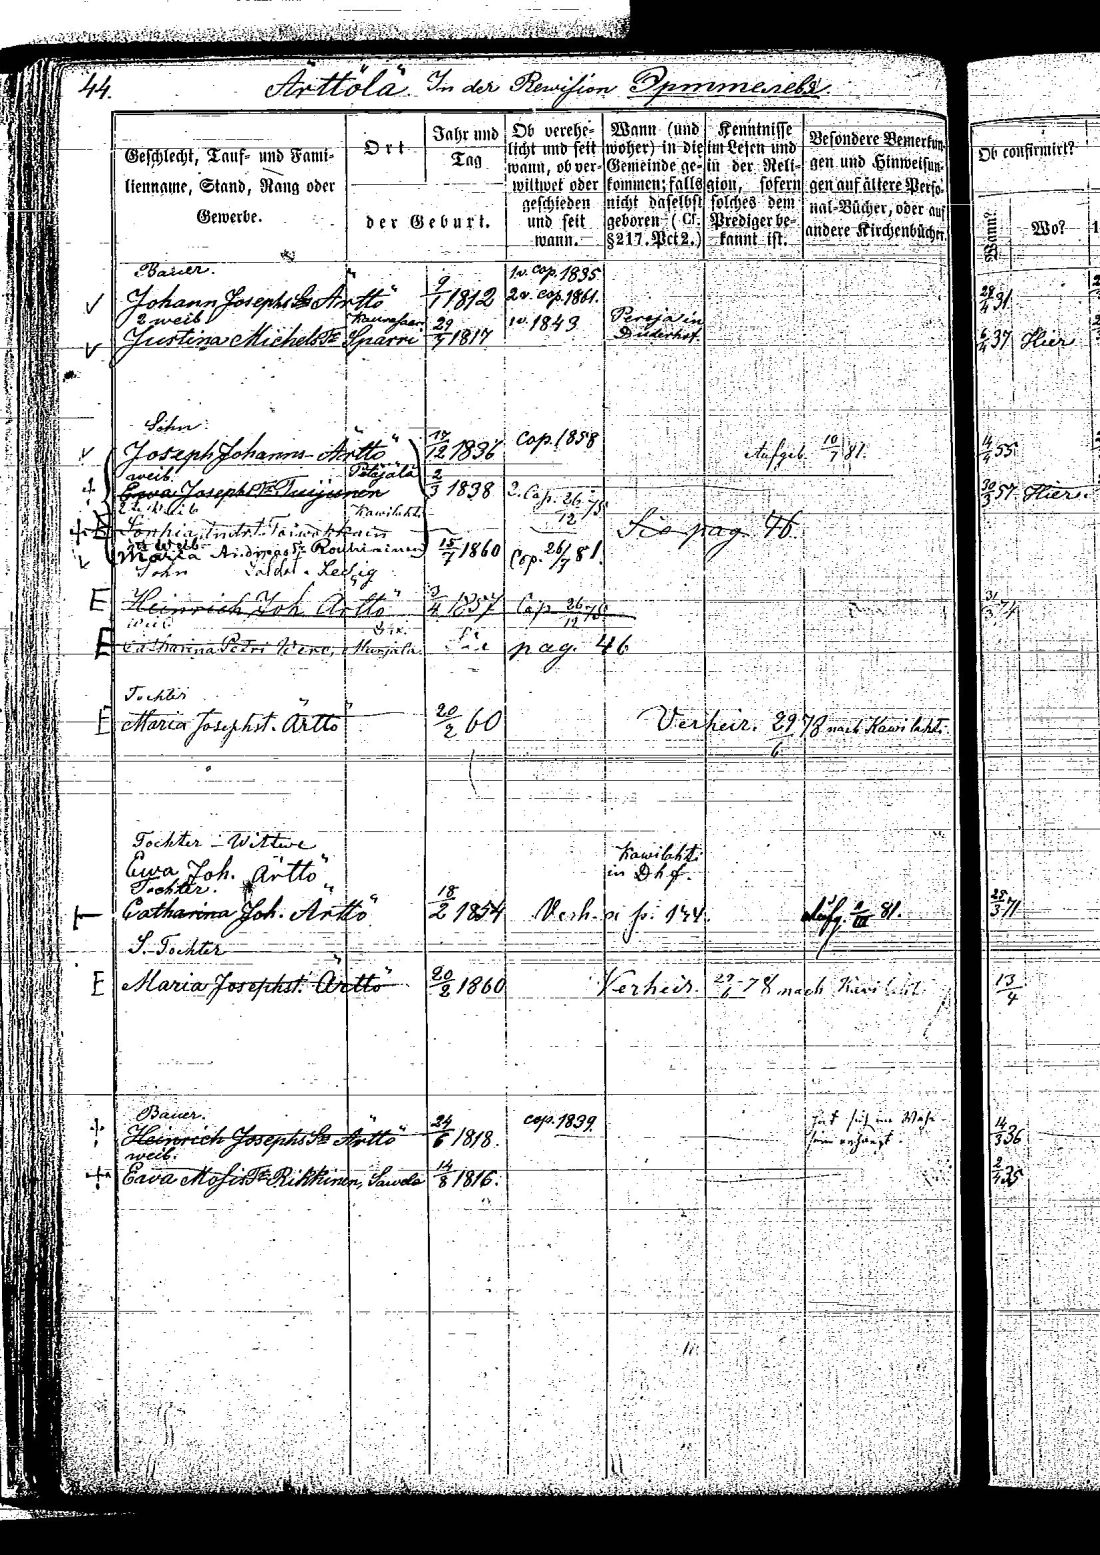 44.
Ärttölä In der Rewision Эрттелевя.
Geschlecht, Tauf- und Fami-
lienname, Stand, Rang oder
Gewerbe.
Ort
der Geburt.
Jahr und
Tag
Ob verehe-
licht und seit
wann, ob ver-
wittwet oder
geschieden
und seit
wann.
Wann (und
woher) in die
Gemeinde ge-
kommen; falls
nicht daselbst
geboren (Cf.
§ 217. Pct 2.)
Kenntnisse
im Lesen und
in der Reli-
gion, sofern
solches dem
Prediger be-
kannt ist.
Besondere Bemerkun-
gen und Hinweisun-
gen auf ältere Perso-
nal-Bücher, oder auf
andere Kirchenbücher
Ob confirmirt?
Wann?
Wo?
Bauer.
Johann Josephs S. Ärttö 9/1 1812 1v. cop. 1835
2v. cop. 1861. 28/4 31
2 weib
Justina Michels Tr. Sparri 29/7 1817 w. 1843 6/4 37 Hier
Sohn
Joseph Johanns Ärttö 17/12 1836 Cop. 1858 Aufgeb. 10/7 81. 14/4 55
weib. Pätäjälä
Ewa Joseph Tr. Tuijunen 2/3 1838 2. Cop. 26/12 75 30/3 57 Hier.
2tes Weib Kawilahti
Sie pag. 46
Maria 15/7 1860 Cop. 26/7 81.
Sohn Soldat Ledig
Heinrich Joh. Ärttö 3/4 1857 Cop. 26/12 75 31/3 74
weib
Catharina Petri pag. 46
Tochter
Maria Josephst. Ärttö 20/2 60 Verheir. 29/6 78 nach Kawilahti.
Tochter - Wittwe
Ewa Joh. Ärttö
Kawilahti
in Dhf.
Tochter.
Catharina Joh. Ärttö 18/2 1854 Verh. a p. 144. Aufg. 1/III 81. 28/3 71
S. Tochter
Maria Josephst. Ärttö 20/2 1860 Verheir. 29/6 78 nach Kawilaht. 13/4
Bauer.
Heinrich Josephs S. Ärttö 24/6 1818. cop. 1839. 14/3 36
weib.
Ewa Mosis Tr. Rikkinen, Sawola 14/8 1816. 2/4 35